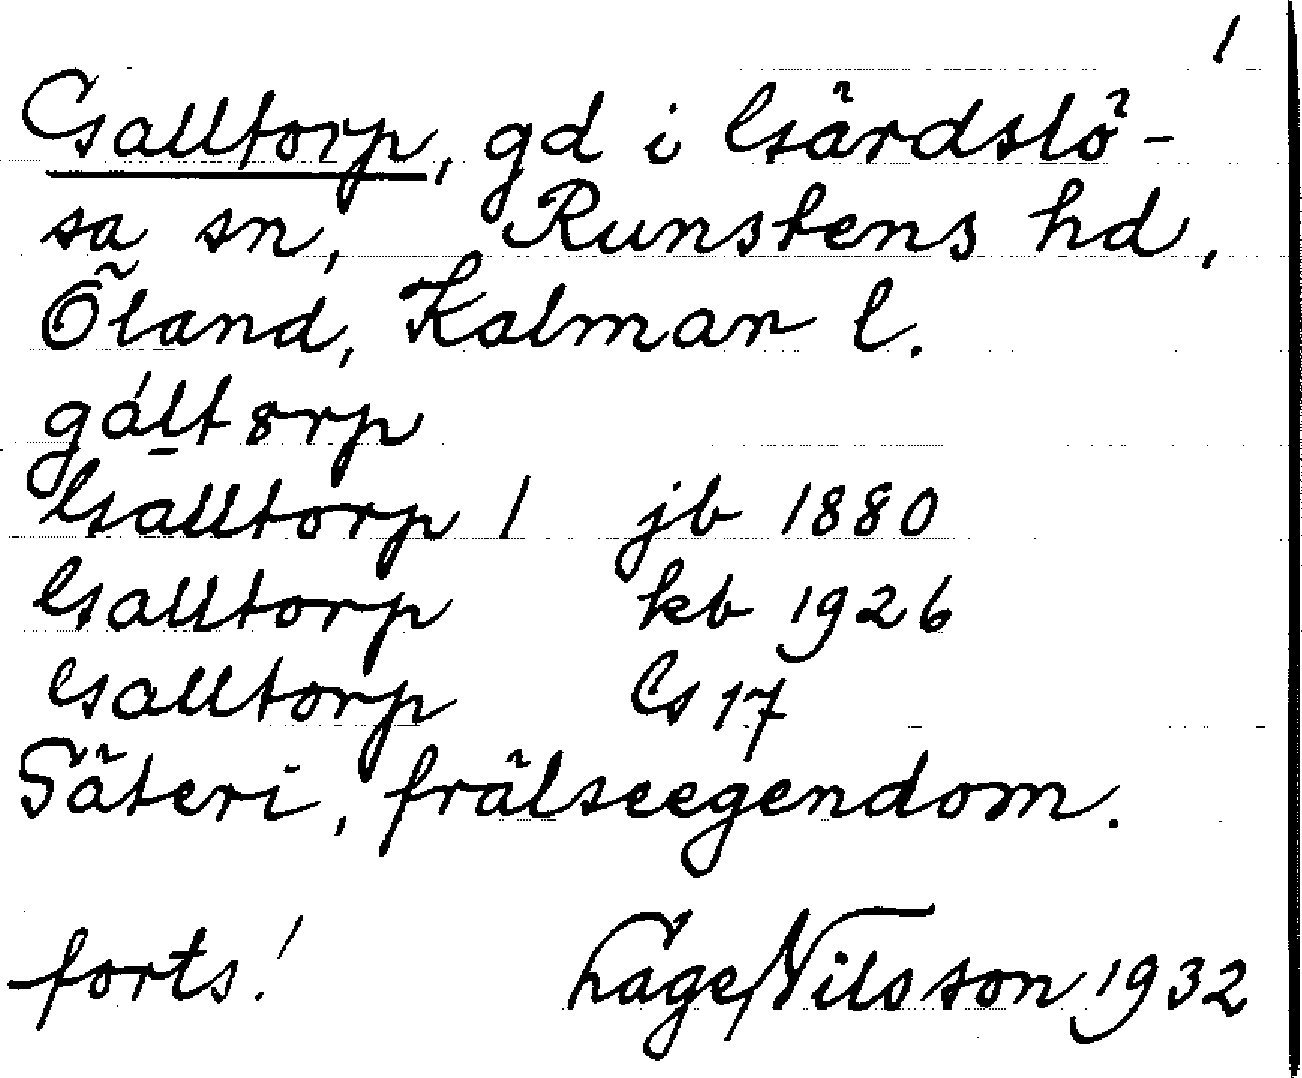 1
Galltorp, gd i Gärdslö-
sa sn, Runstens hd,
Öland, Kalmar l.
gáltørp
Galltorp 1 jb 1880
Galltorp kb 1926
Galltorp Gs 17
Säteri, frälseegendom.
forts! Nilsson 1932